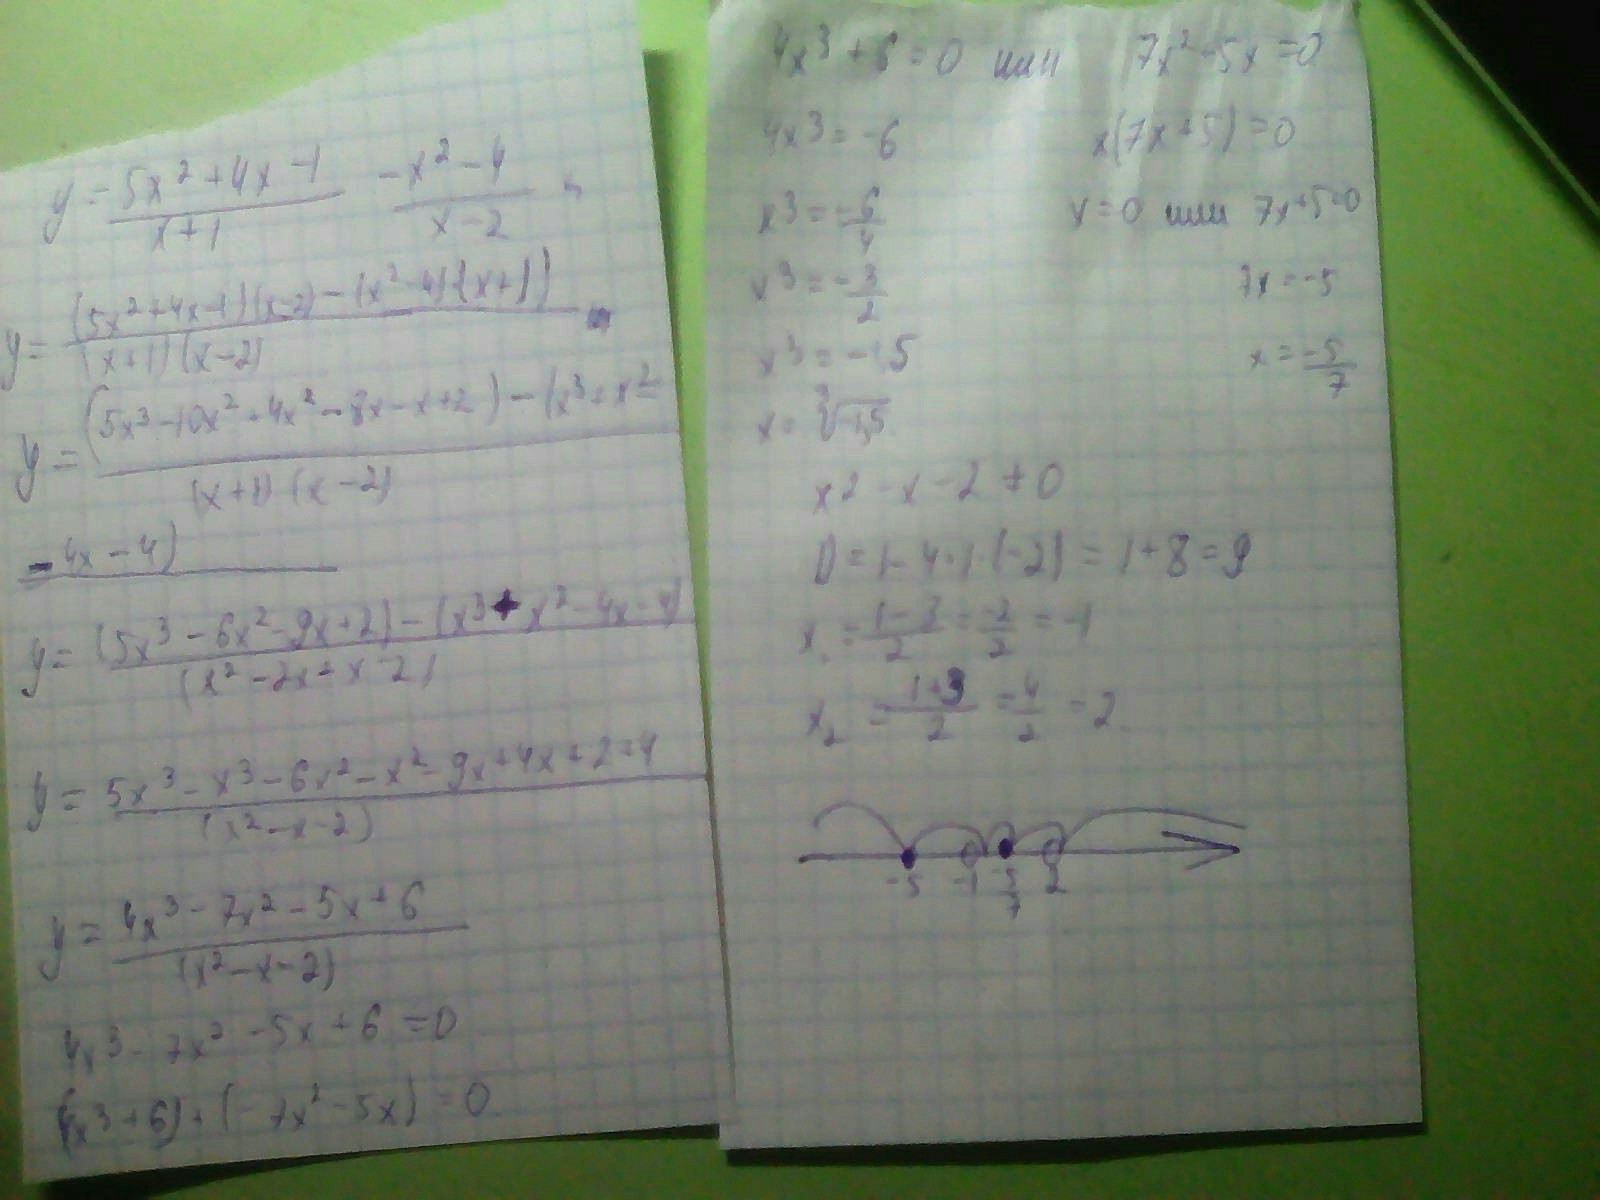 y = (5x² + 4x - 1)/(x + 1) - (x² - 4)/(x - 2)
y = ((5x² + 4x - 1)(x - 2) - (x² - 4)(x + 1))/((x + 1)(x - 2))
y = ((5x³ - 10x² + 4x² - 8x - x + 2) - (x³ + x² -
(x + 1)(x - 2)
- 4x - 4)
y = ((5x³ - 6x² - 9x + 2) - (x³ + x² - 4x - 4)
(x² - 2x + x - 2)
y = (5x³ - x³ - 6x² - x² - 9x + 4x + 2 + 4)/(x² - x - 2)
y = (4x³ - 7x² - 5x + 6)/(x² - x - 2)
4x³ - 7x² - 5x + 6 = 0
(4x³ + 6) + (-7x² - 5x) = 0
4x³ + 6 = 0 или 7x² - 5x = 0
4x³ = -6 x(7x + 5) = 0
x³ = -6/4 x = 0 или 7x + 5 = 0
x³ = -3/2 7x = -5
x³ = -1,5 x = -5/7
x = ³√-1,5
x² - x - 2 ≠ 0
D = 1 - 4 · 1 · (-2) = 1 + 8 = 9
x₁ = (1 - 3)/2 = -2/2 = -1
x₂ = (1 + 3)/2 = 4/2 = 2
-5 -1 -5/7 2